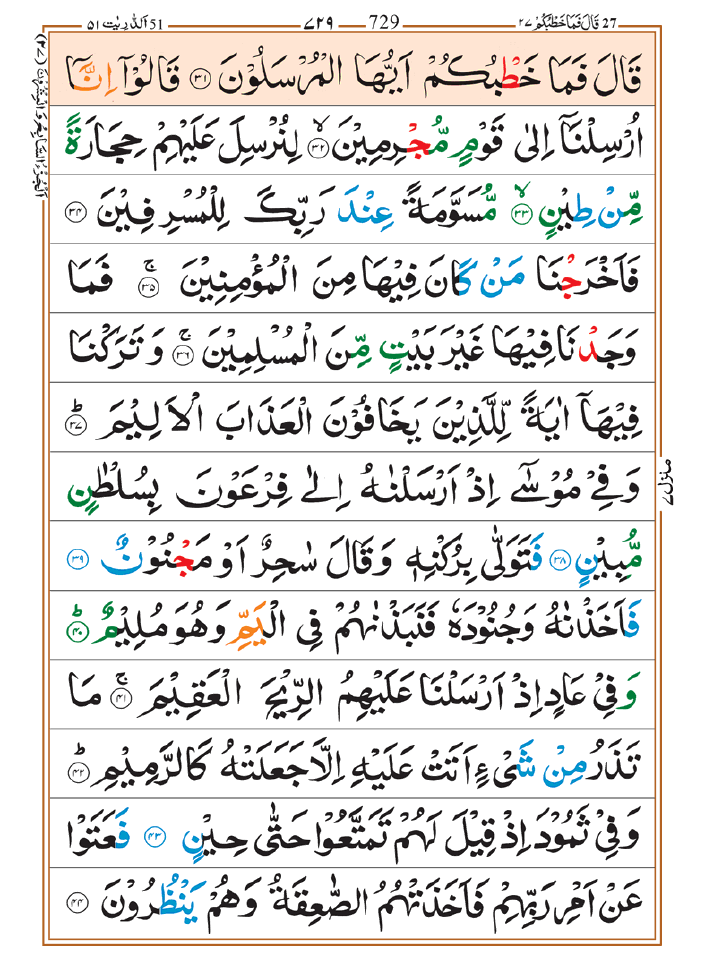 27 قَالَ فَمَا خَطْبُكُمْ ۲۷ 729 ۷۲۹ 51 اَلذّٰرِيٰت ۵۱
قَالَ فَمَا خَطْبُكُمْ اَيُّهَا الْمُرْسَلُوْنَ ۳۱ قَالُوْۤا اِنَّاۤ
اُرْسِلْنَاۤ اِلٰى قَوْمٍ مُّجْرِمِيْنَ ۙ۳۲ لِنُرْسِلَ عَلَيْهِمْ حِجَارَةً
مِّنْ طِيْنٍ ۙ۳۳ مُّسَوَّمَةً عِنْدَ رَبِّكَ لِلْمُسْرِفِيْنَ ۳۴
فَاَخْرَجْنَا مَنْ كَانَ فِيْهَا مِنَ الْمُؤْمِنِيْنَ ۚ۳۵ فَمَا
وَجَدْنَا فِيْهَا غَيْرَ بَيْتٍ مِّنَ الْمُسْلِمِيْنَ ۚ۳۶ وَتَرَكْنَا
فِيْهَاۤ اٰيَةً لِّلَّذِيْنَ يَخَافُوْنَ الْعَذَابَ الْاَلِيْمَ ؕ۳۷
وَفِيْ مُوْسٰۤى اِذْ اَرْسَلْنٰهُ اِلٰى فِرْعَوْنَ بِسُلْطٰنٍ
مُّبِيْنٍ ۳۸ فَتَوَلّٰى بِرُكْنِهٖ وَقَالَ سٰحِرٌ اَوْ مَجْنُوْنٌ ۳۹
فَاَخَذْنٰهُ وَجُنُوْدَهٗ فَنَبَذْنٰهُمْ فِي الْيَمِّ وَهُوَ مُلِيْمٌ ؕ۴۰
وَفِيْ عَادٍ اِذْ اَرْسَلْنَا عَلَيْهِمُ الرِّيْحَ الْعَقِيْمَ ۚ۴۱ مَا
تَذَرُ مِنْ شَيْءٍ اَتَتْ عَلَيْهِ اِلَّا جَعَلَتْهُ كَالرَّمِيْمِ ؕ۴۲
وَفِيْ ثَمُوْدَ اِذْ قِيْلَ لَهُمْ تَمَتَّعُوْا حَتّٰى حِيْنٍ ۴۳ فَعَتَوْا
عَنْ اَمْرِ رَبِّهِمْ فَاَخَذَتْهُمُ الصّٰعِقَةُ وَهُمْ يَنْظُرُوْنَ ۴۴
اَلْجُزْءُ السَّابِعُ وَالْعِشْرُوْنَ (۲۷)
منزل ۷